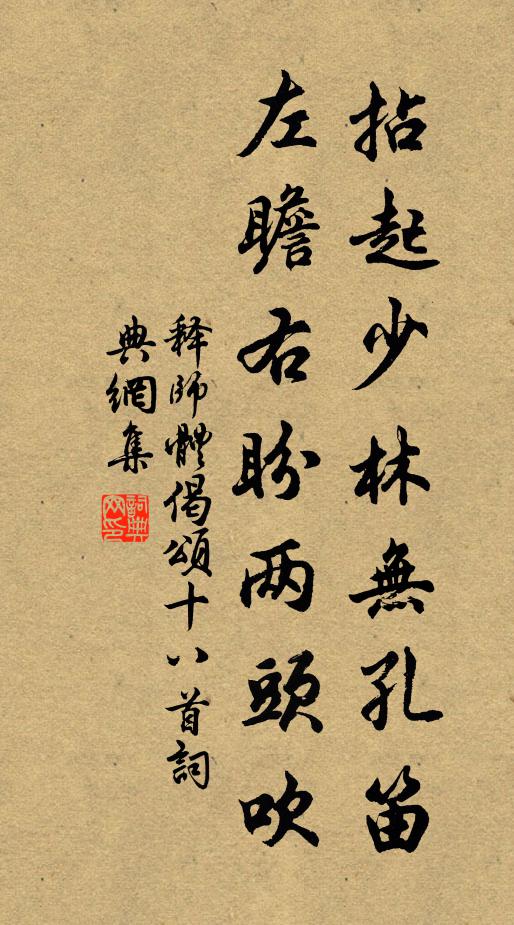 拈起少林無孔笛
左瞻右盼两頭吹
释師體偈頌十八首詞
典網集
詞典
网印